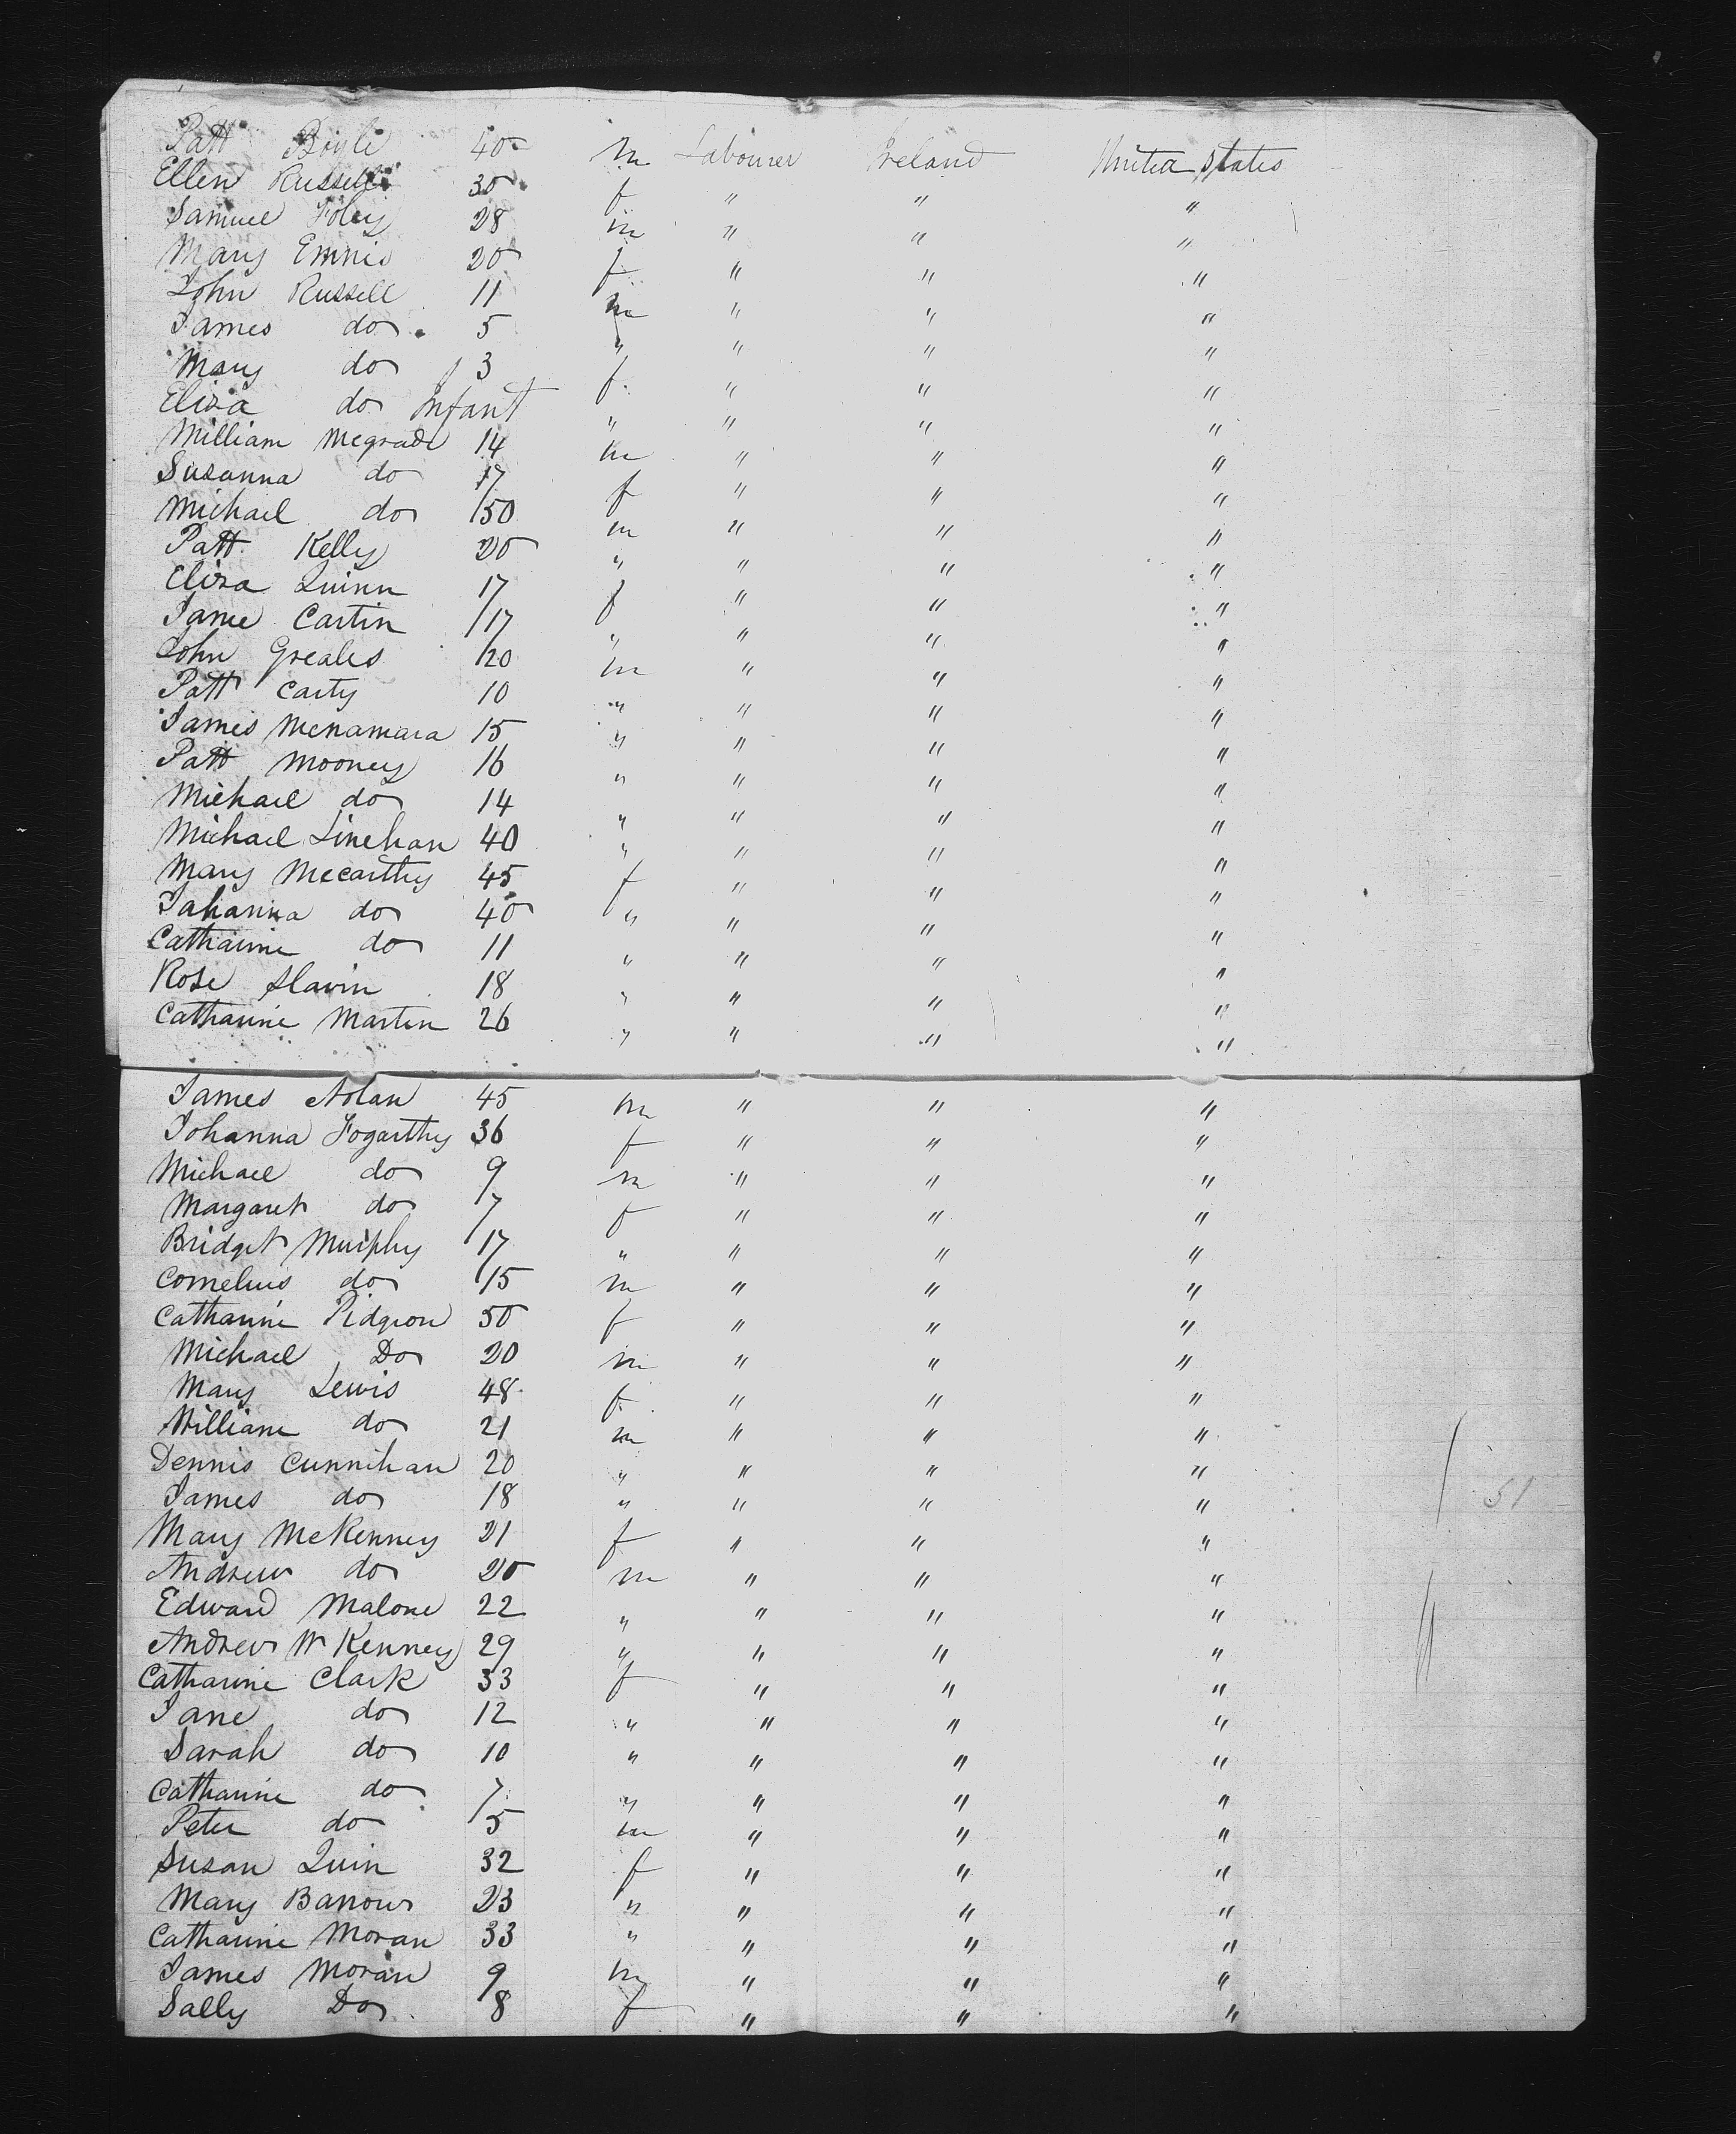 Patt Boyle 40 m Labourer Ireland United States
Ellen Russell 30 f " " "
Samuel Foley 28 m " " "
Mary Ennis 20 f " " "
John Russell 11 m " " "
James do 5 " " " "
Mary do 3 f " " "
Eliza do Infant " " " "
William Mcgrade 14 m " " "
Susanna do 17 f " " "
Michael do 50 m " " "
Patt Kelly 20 " " " "
Eliza Quinn 17 f " " "
Jane Cartin 17 " " " "
John Greales 20 m " " "
Patt Carty 10 " " " "
James Mcnamara 15 " " " "
Patt Mooney 16 " " " "
Michael do 14 " " " "
Michael Linehan 40 " " " "
Mary Mccarthy 45 f " " "
Johanna do 40 " " " "
Catharine do 11 " " " "
Rose Slavin 18 " " " "
Catharine Martin 26 " " " "
James Nolan 45 m " " "
Johanna Fogarthy 36 f " " "
Michael do 9 m " " "
Margaret do 7 f " " "
Bridget Murphy 17 " " " "
Cornelius do 15 m " " "
Catharine Pidgeon 50 f " " "
Michael Do 20 m " " "
Mary Lewis 48 f " " "
William do 21 m " " "
Dennis Cunnihan 20 " " " "
James do 18 " " " " 51
Mary McKenney 21 f " " "
Andrew do 20 m " " "
Edward Malone 22 " " " "
Andrew Mc Kenney 29 " " " "
Catharine Clark 33 f " " "
Jane do 12 " " " "
Sarah do 10 " " " "
Catharine do 7 " " " "
Peter do 5 m " " "
Susan Quin 32 f " " "
Mary Barrows 23 " " " "
Catharine Moran 33 " " " "
James Moran 9 m " " "
Sally Do 8 f " " "